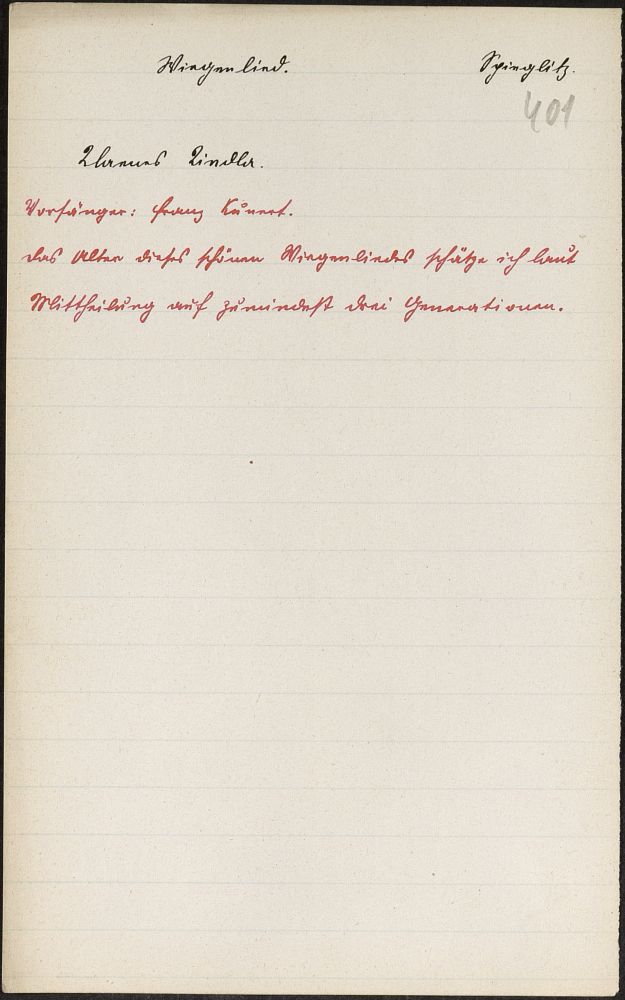 Wiegenlied. Spieglitz.
401
Klaenes Kindla.
Vorsänger: Franz Kunert.
Das Alter dieses schönen Wiegenliedes schätze ich laut
Mittheilung auf zumindest drei Generationen.